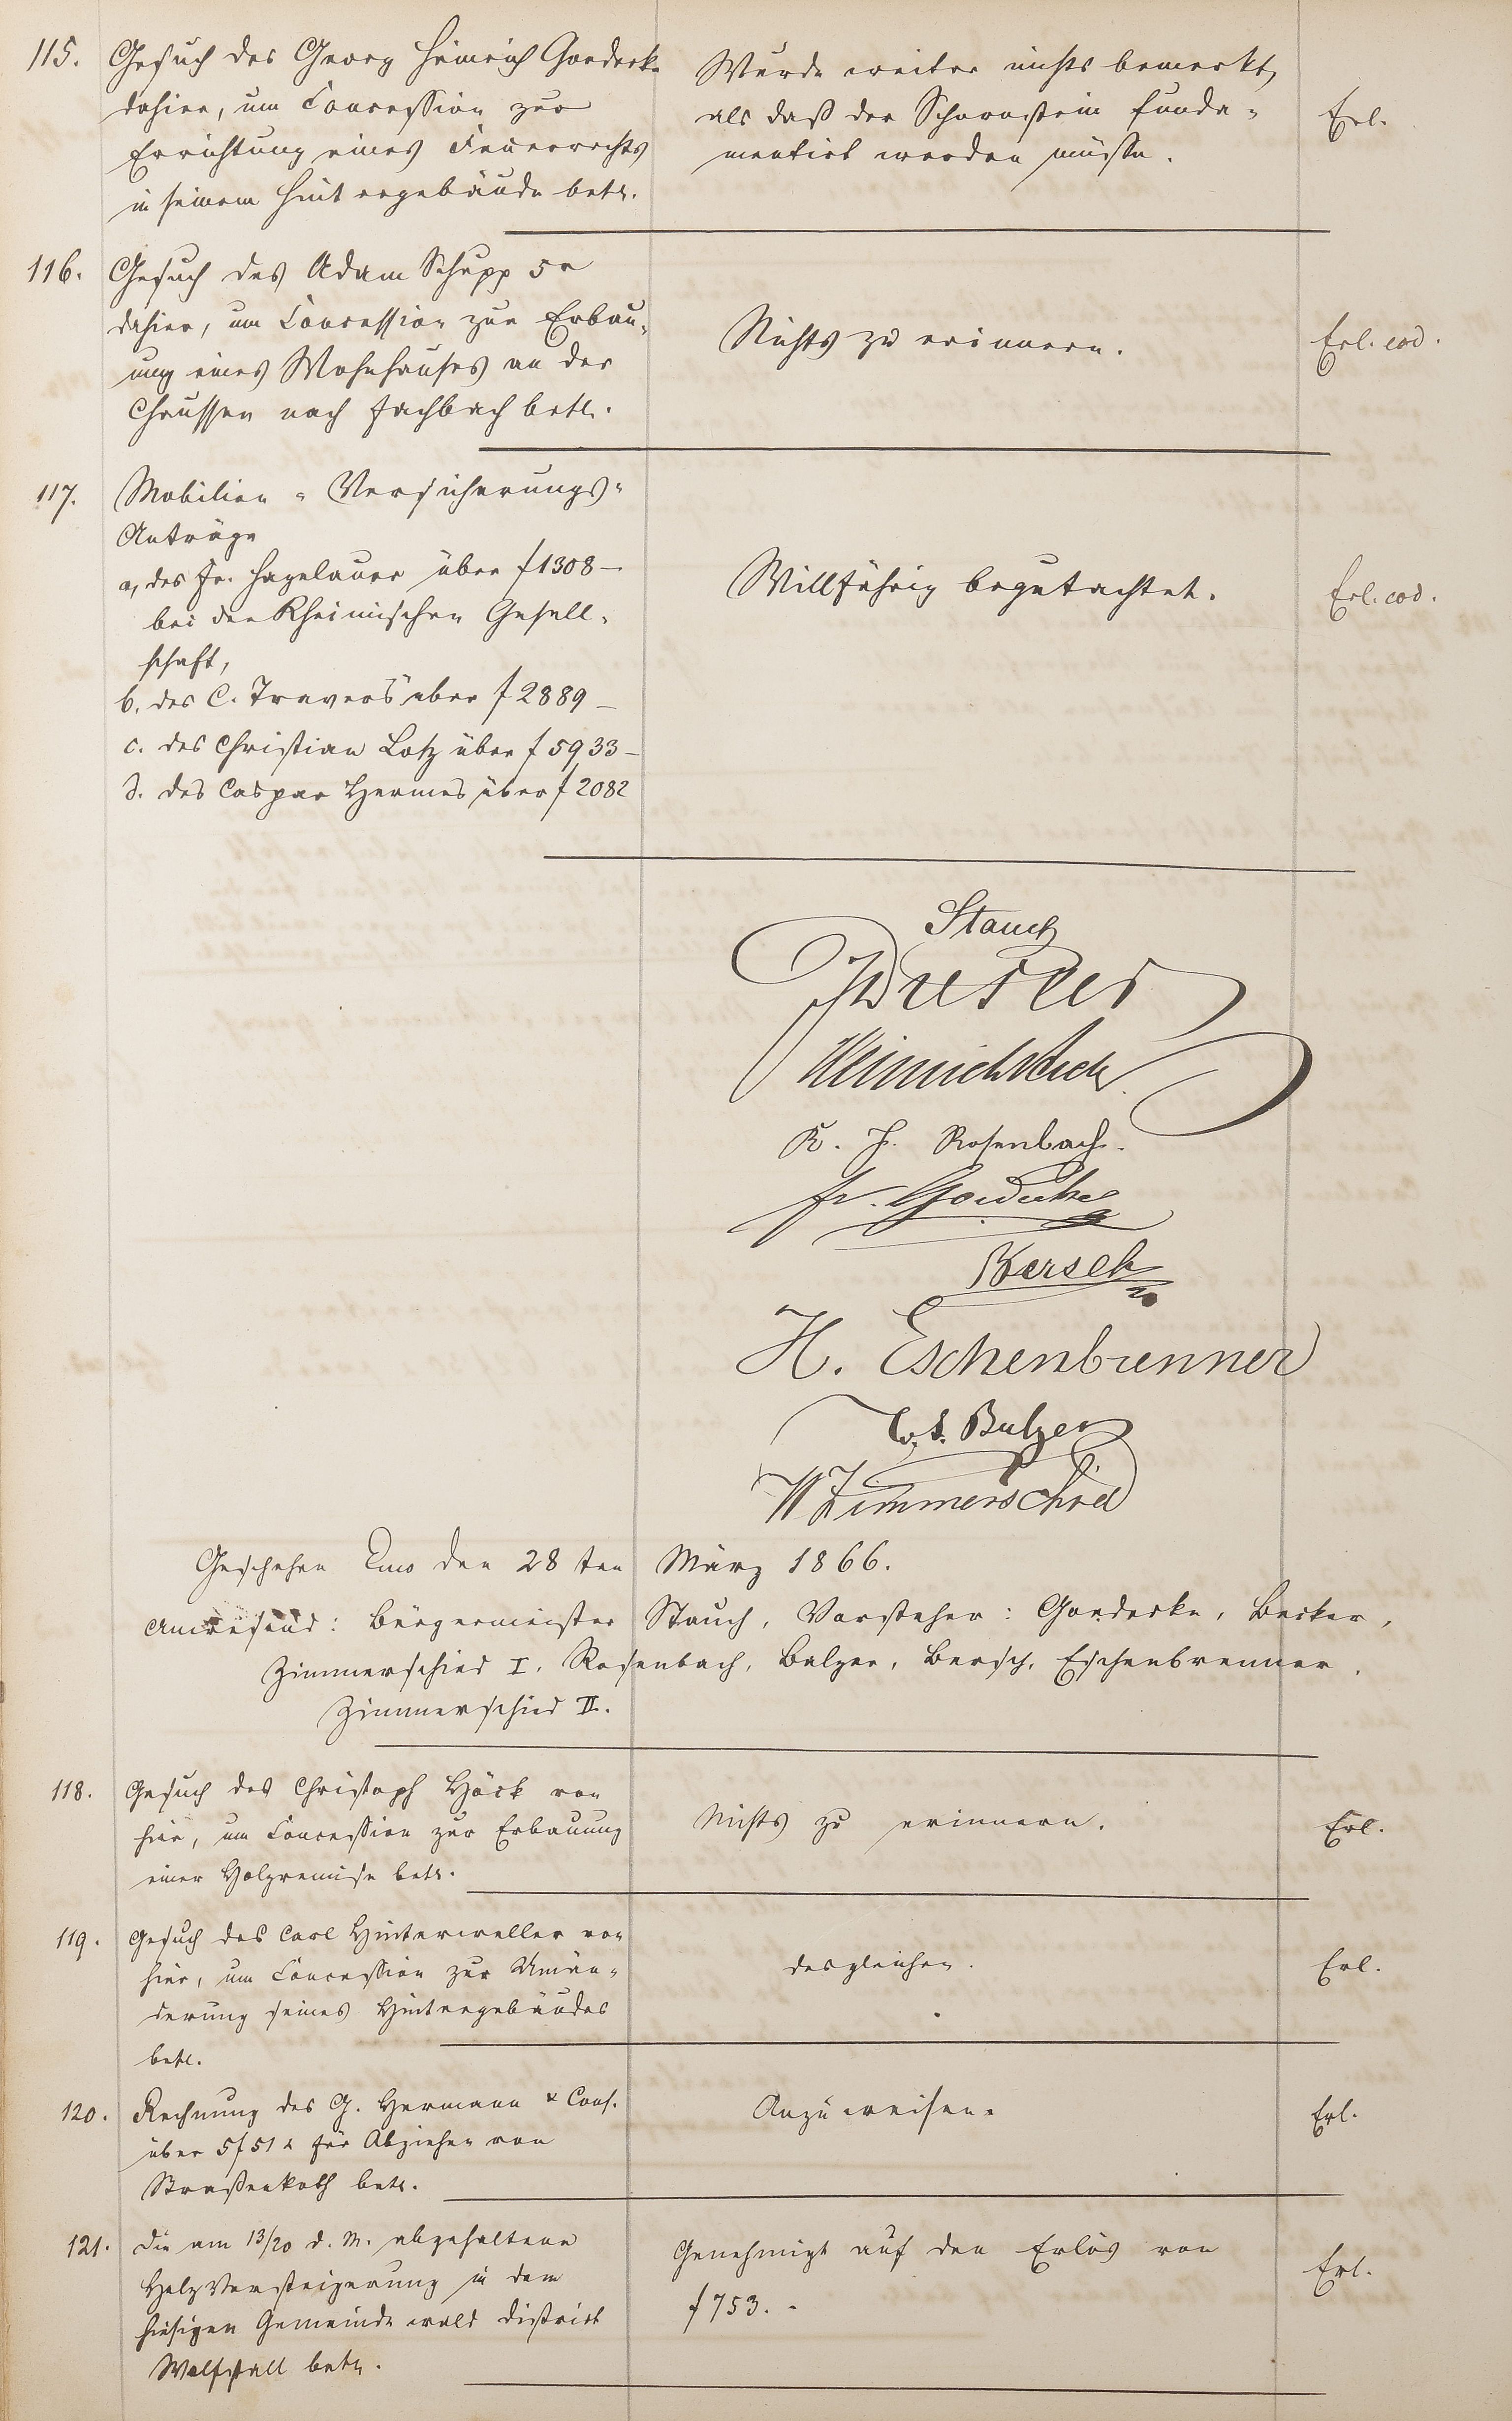 115. Gesuch des Georg Heinrich Goedecke
dahier, um Concession zur
Errichtung eines Feuerrechts
in seinem Hintergebäude betr.
Wurde weiter nichts bemerkt,
als daß der Schornstein funda-
mentirt werden müsse.
Erl.
116. Gesuch des Adam Schupp 5r
dahier, um Concession zur Erbau-
ung eines Wohnhauses an der
Chaussee nach Fachbach betr.
Nichts zu erinnern.
Erl. eod.
117. Mobilien-Versicherungs-
Anträge
a, des Fr. Hagelauer über f 1308 –
bei der Rheinischen Gesell-
schaft,
b. des C. Travers über f 2889 –
c. des Christian Lotz über f 5933 –
d. des Caspar Hermes über f 2082
Willfährig begutachtet.
Erl. eod.
Stauch
Heinrich
K. H. Rosenbach.
Fr. Goedecke
Bersch
H. Eschenbrenner
Balzer
W Zimmerschied
Geschehen Ems den 28ten März 1866.
Anwesend: Bürgermeister Stauch, Vorsteher: Goedecke, Becker,
Zimmerschied I. Rosenbach, Balzer, Bersch, Eschenbrenner,
Zimmerschied II.
118. Gesuch des Christoph Höck von
hier, um Concession zur Erbauung
einer Holzremise betr.
Nichts zu erinnern.
Erl.
119. Gesuch des Carl Hinterweller von
hier, um Concession zur Umän-
derung seines Hintergebäudes
betr.
desgleichen.
Erl.
120. Rechnung des G. Hermann & Cons.
über 5 f 51 x für Abziehen von
Straßenkoth betr.
Anzuweisen.
Erl.
121. Die am 13/20 d. M. abgehaltene
Holzversteigerung in dem
hiesigen Gemeindewald District
Wolfstall betr.
Genehmigt auf den Erlös von
f 753. –
Erl.